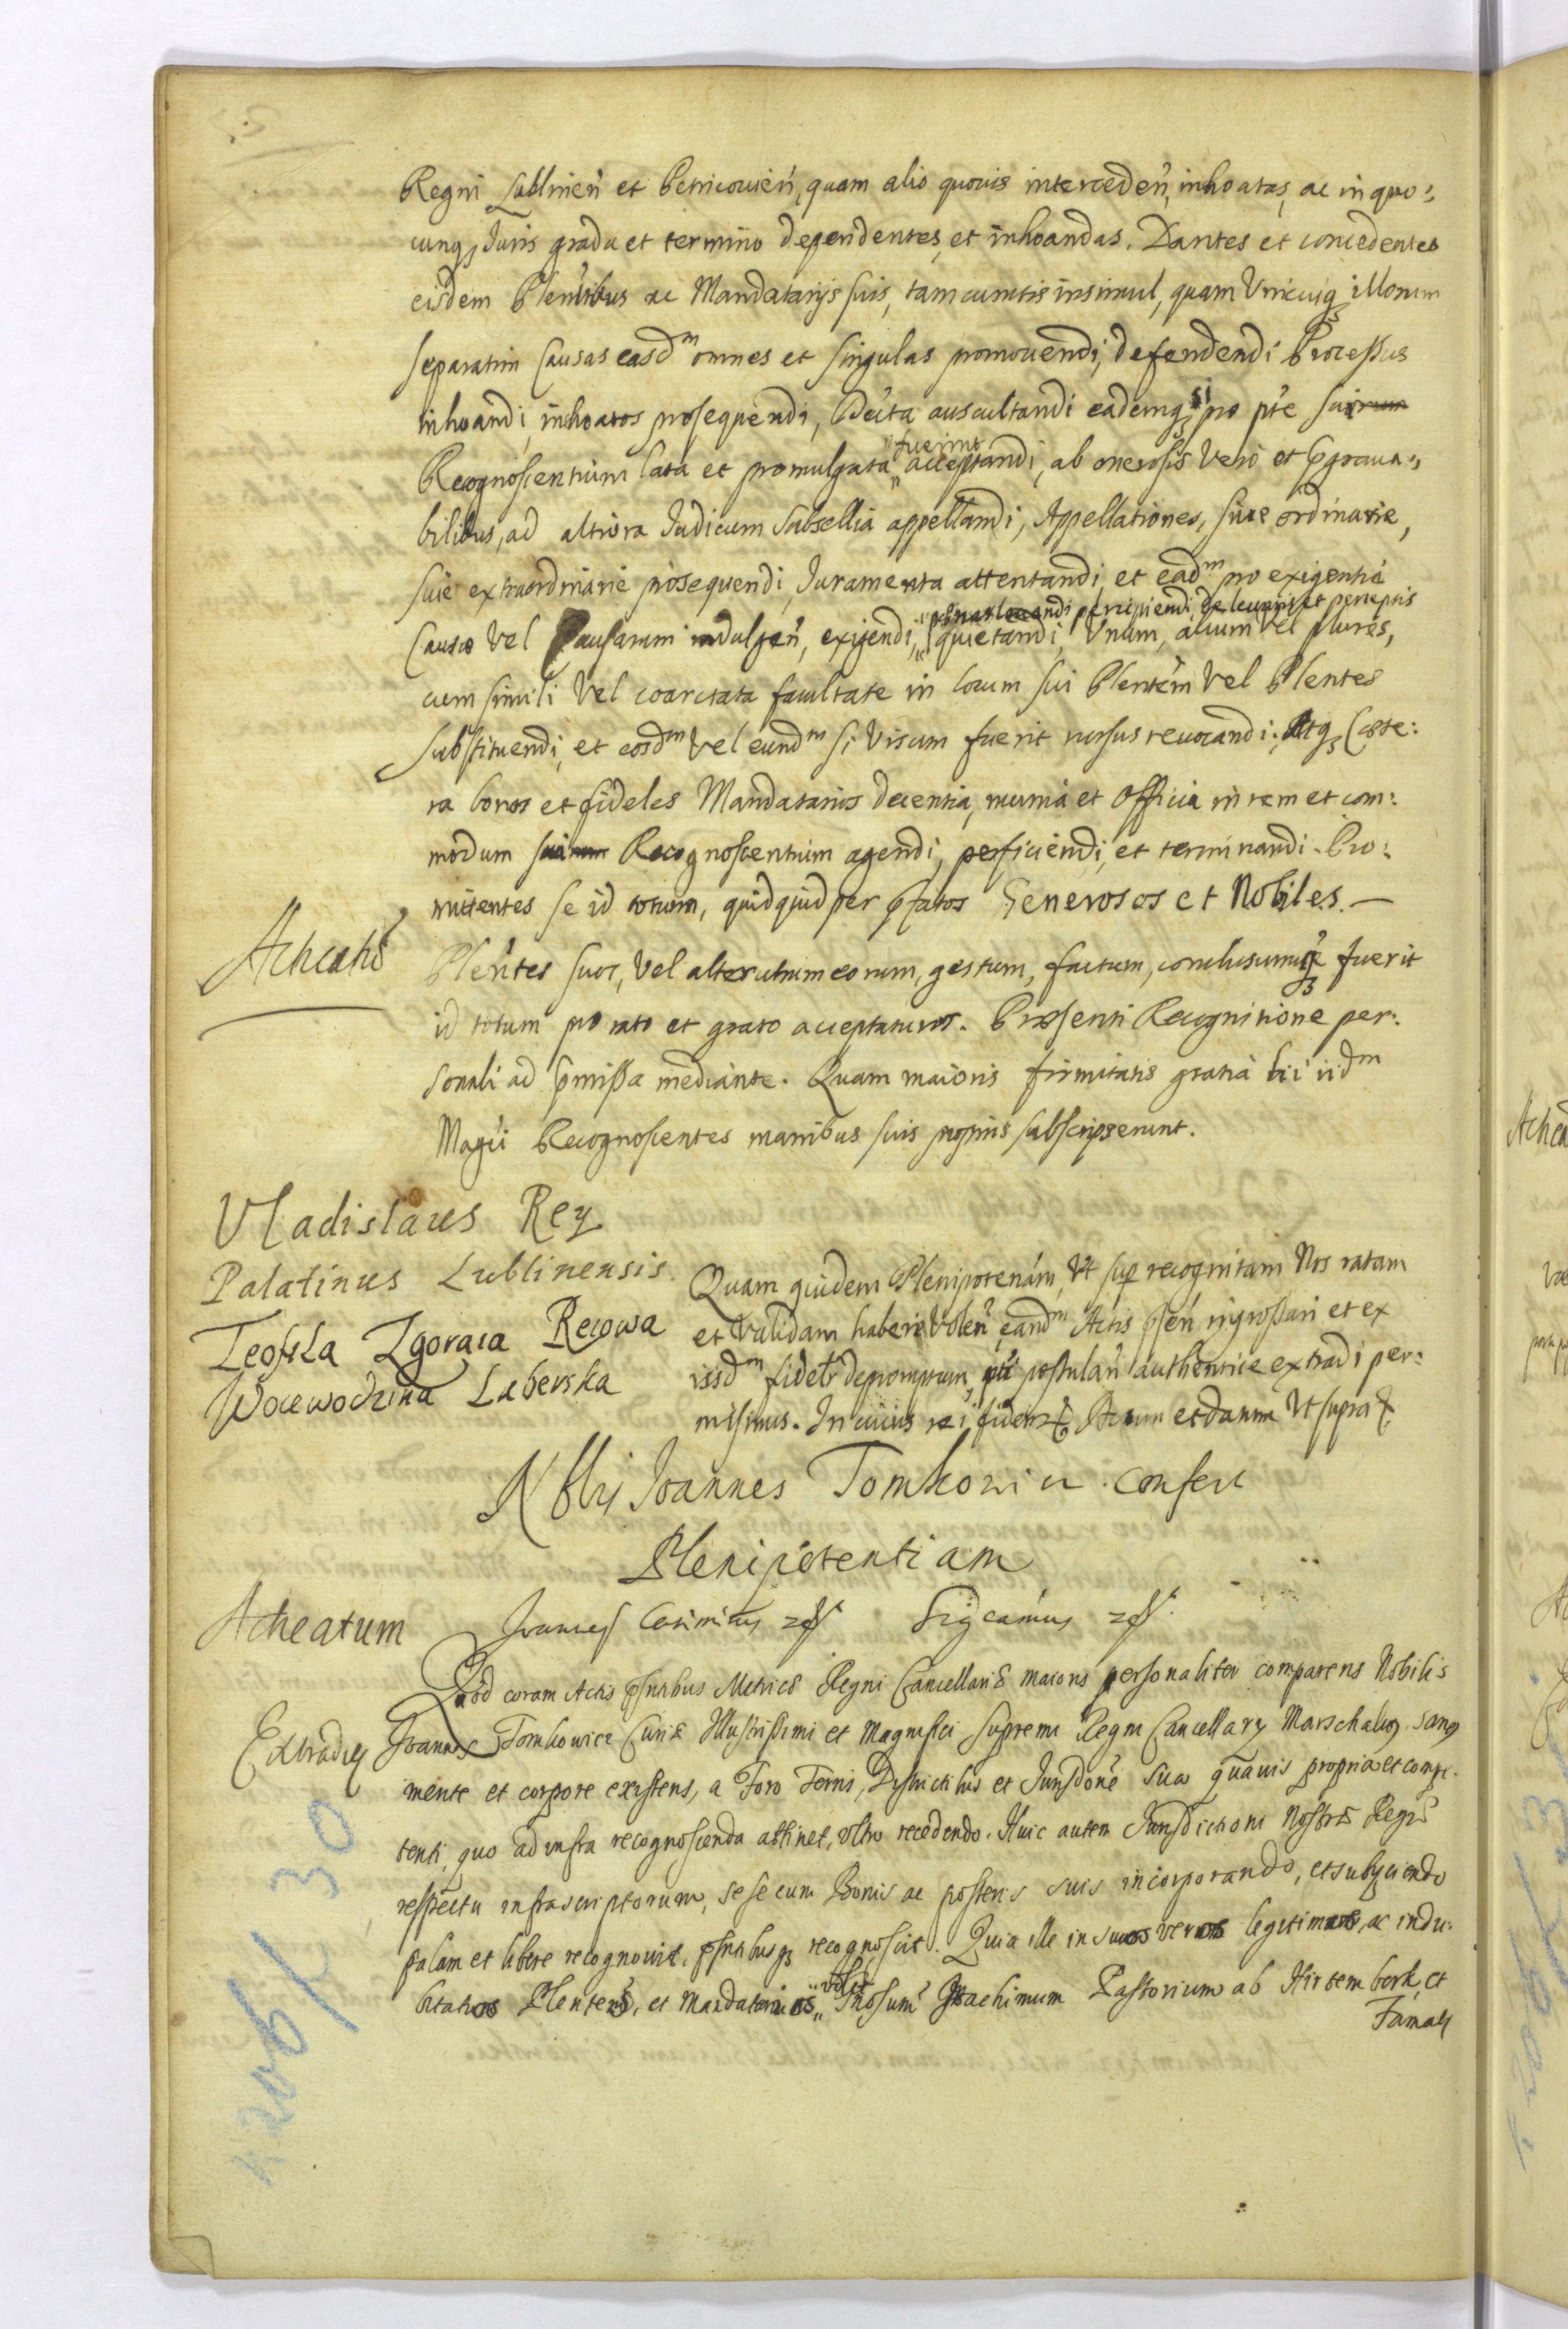 Regni Lublinen̄ et Petricovien̄, quam alio quovis interceden̄, inhoatas, ac in quo:
cunq3 Juris gradu et termino dependentes, et inhoandas. Dantes et concedentes
eisdem Plen̄tibus ac Mandatarijs suis, tam cunctis insimul, quam Unicuiq3 illorum
separatim Causas easdm omnes et singulas promovendi, defendendi Processus
inhoandi, inhoatos prosequendi, Decreta auscultandi eademq3 si pro pte sui
Recognoscentium lata et promulgata fuerint acceptandi, ab onerosis Vero et pgrava:
bilibus, ad altiora Judicum Subsellia appellandi, Appellationes, sive ordinarie,
sive extraordinarie prosequendi, Juramenta attentandi et eadm pro exigentia
percipiendi de levatis et perceptis
Causæ Vel Causarum indulgen̄, exigendi, quietandi, Unum, alium vel plures,
cum simili Vel coarctata facultate in locum sui Plentem Vel Plentes
substituendi, et eosdm Vel eundm si Visum fuerit rursus revocandi. Atq3 Cæte:
ra bonos et fideles Mandatarios decentia, munia et Officia in rem et com:
modum Recognoscentium agendi, perficiendi, et terminandi. Pro:
mittentes se id totum, quidquid per pfatos Generosos et Nobiles. —
Plen̄tes suos, Vel alterutrum eorum, gestum, factum, conclusumq3 fuerit
id totum pro rato et grato acceptaturos. Præsenti Recognitione per:
sonali ad pmissa mediante. Quam maioris firmitatis gratia hi iidm
Magci Recognoscentes manibus suis proprijs subscripserunt.
Vladislaus Rey
Palatinus Lublinensis.
Teofila Zgoraia Reiowa
Woiewodzina Luberska
Quam quidem Plenipotenām, Ut sup recognitam Nos ratam
et Validam haberi Volen̄ eandm Actis psen̄ ingrossari et ex
iisdm fideltr depromptum, pti postulan̄ authentice extradi per:
misimus. In cuius rei fidem Actum et datum Ut supra
Nblis Joannes Tomkowicz. confert
Plenipotentiam
Acticatum
Extradit
Quod coram Actis psntibus Metricæ Regni Cancellariæ maioris personaliter comparens Nobilis
Joannes Tomkowicz Curiæ Illustrissimi et Magnifici Supremi Regni Cancellary Marschalcus. sanus
mente et corpore existens, a Foro Terris, Districtibus et Jurisdone sua quavis propria et compe.
tenti, quo ad infra recognoscenda attinet, ultro recedendo. Huic autem Jurisdictioni Nostræ Regiæ
respectu infrascriptorum, sese cum Bonis ac posteris suis incorporando, et subyciendo
palam et libere recognovit, psntibusq3 recognoscit. Quia ille in suos veros legitimos, ac indu:
bitatos Plentes, et Mandatarios Gnosum Joachimum Pastorium ab Hirtemberk, et
Famat
4206/30